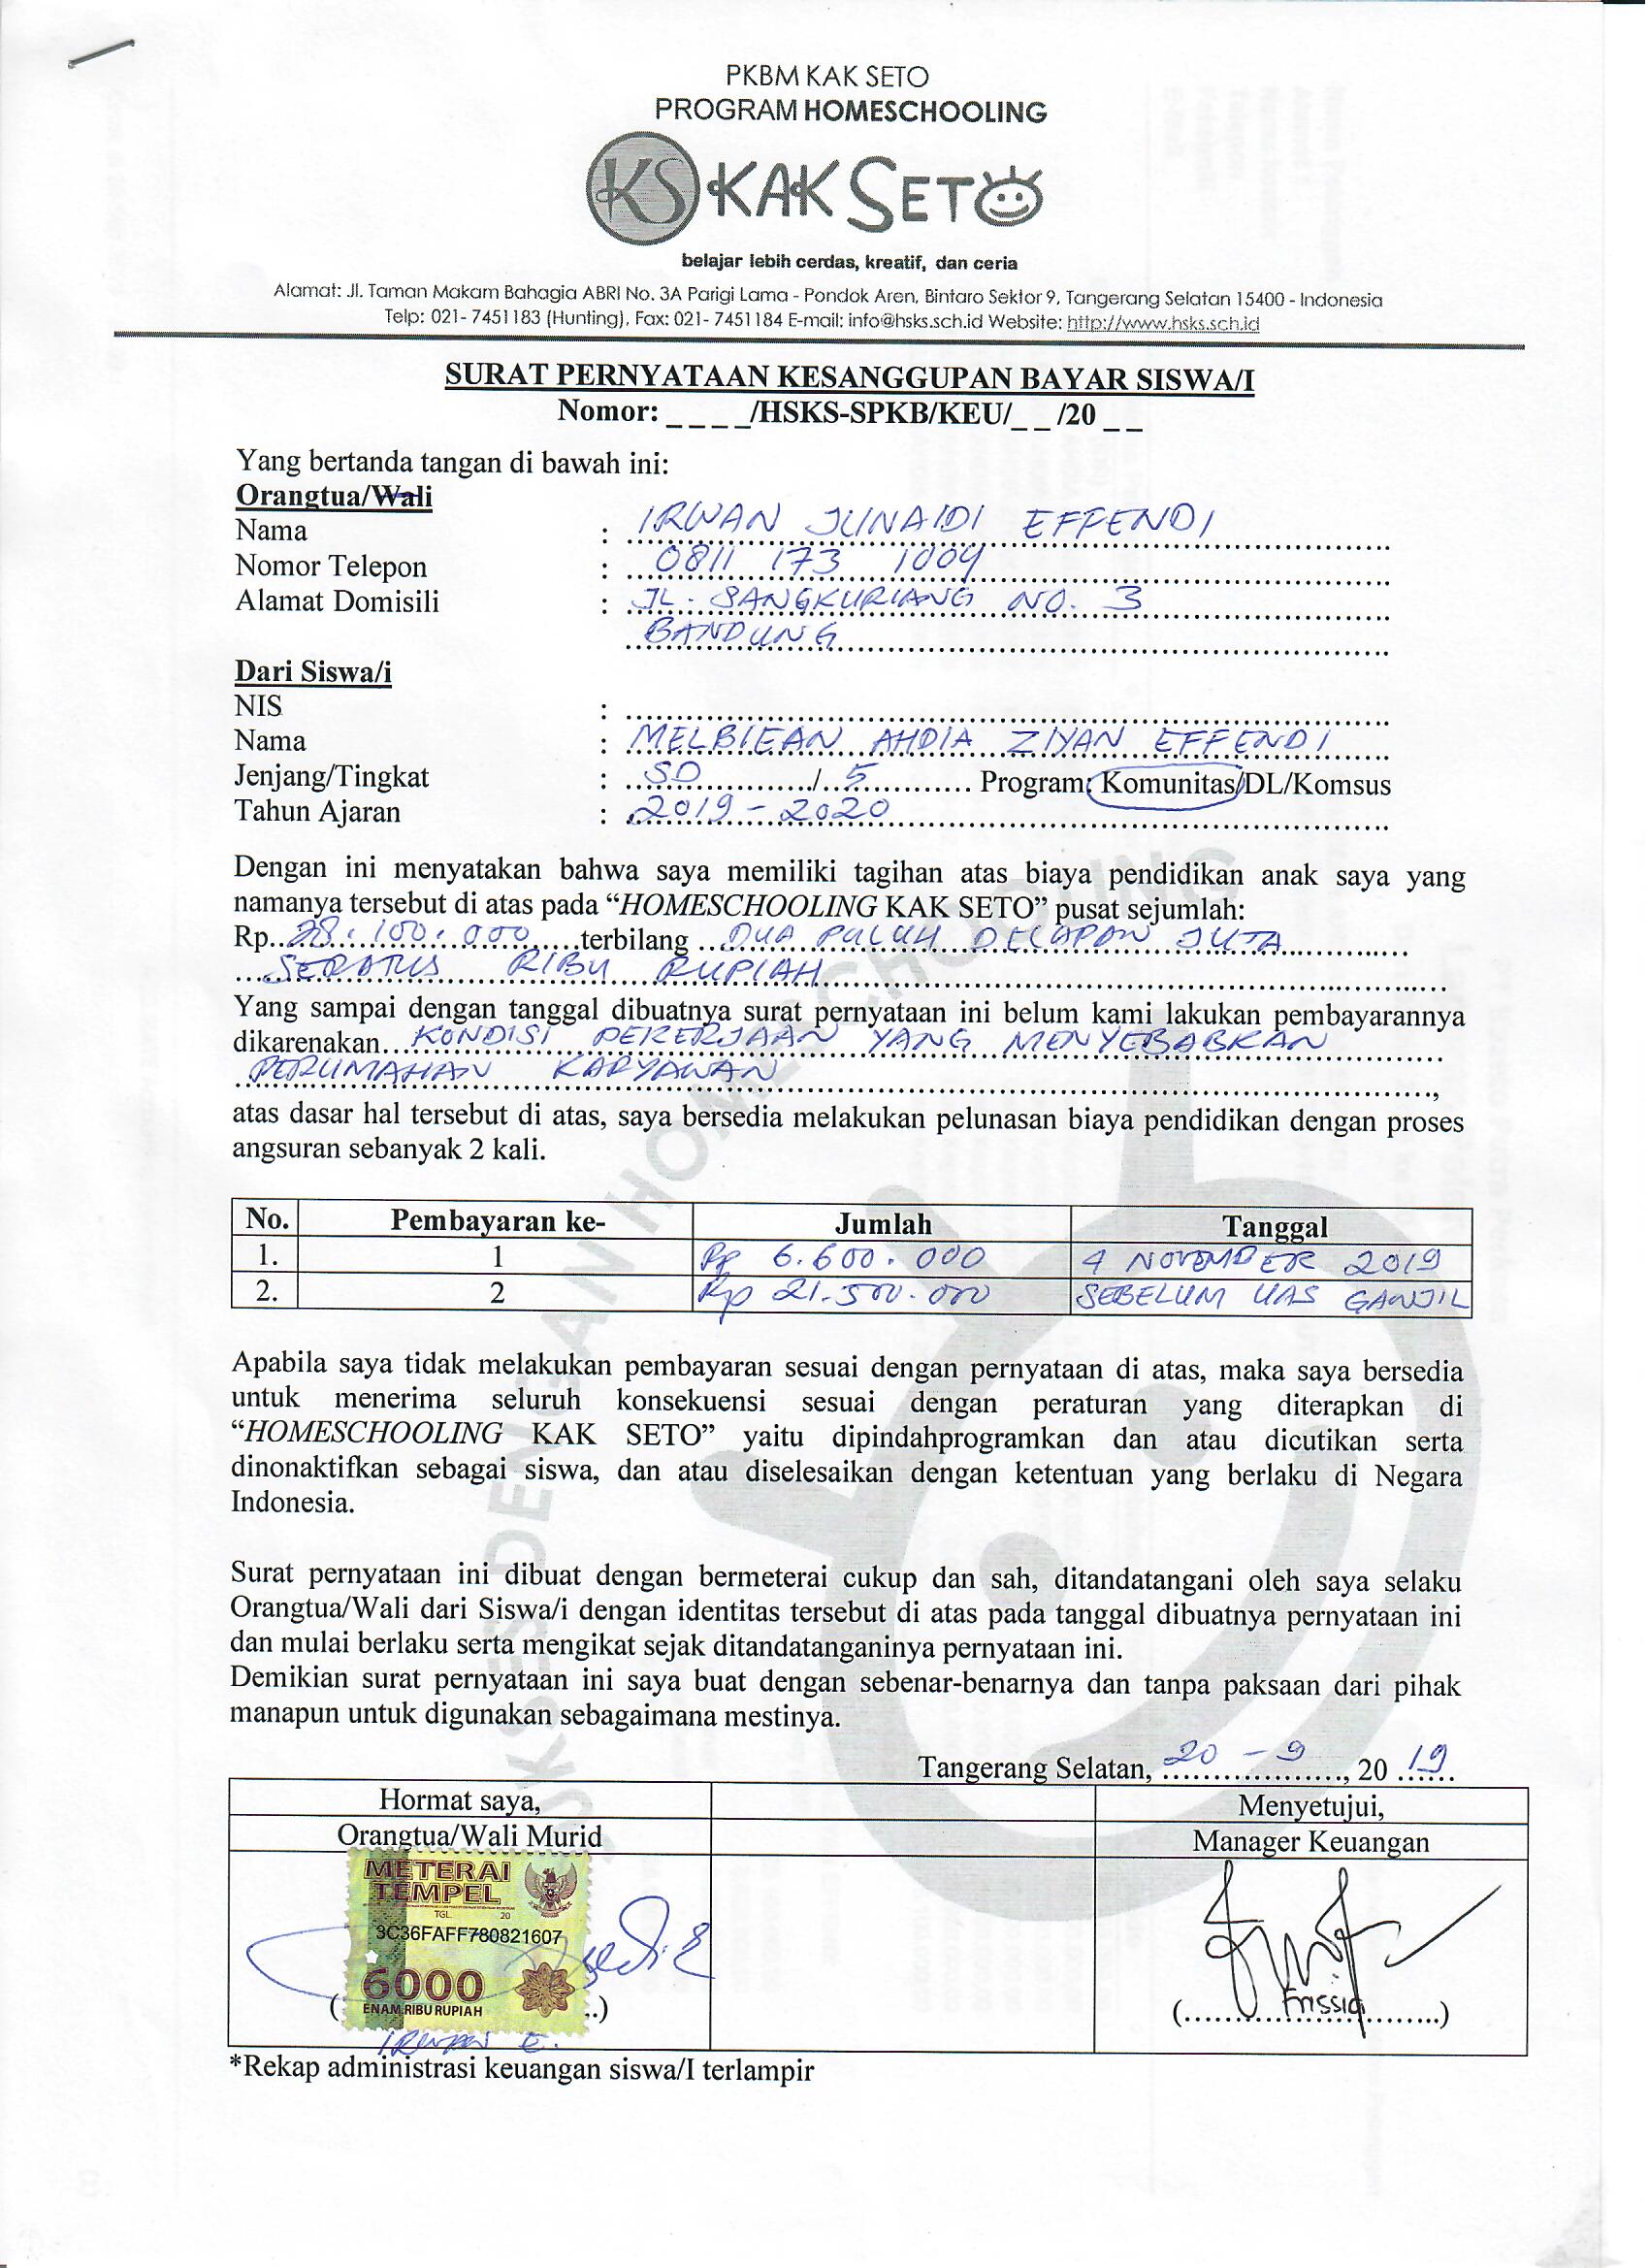 PKBM KAK SETO
PROGRAM HOMESCHOOLING
KS KAK SETO
belajar lebih cerdas, kreatif, dan ceria
Alamat: Jl. Taman Makam Bahagia ABRI No. 3A Parigi Lama - Pondok Aren, Bintaro Sektor 9, Tangerang Selatan 15400 - Indonesia
Telp: 021- 7451183 (Hunting), Fax: 021- 7451184 E-mail: info@hsks.sch.id Website: http://www.hsks.sch.id
SURAT PERNYATAAN KESANGGUPAN BAYAR SISWA/I
Nomor: _ _ _ _/HSKS-SPKB/KEU/_ _ /20 _ _
Yang bertanda tangan di bawah ini:
Orangtua/Wali
Nama : IRWAN JUNAIDI EFFENDI
Nomor Telepon : 0811 173 1004
Alamat Domisili : JL. SANGKURIANG NO. 3
BANDUNG
Dari Siswa/i
NIS :
Nama : MELBIEAN AHDIA ZIYAN EFFENDI
Jenjang/Tingkat : SD / 5 Program: Komunitas/DL/Komsus
Tahun Ajaran : 2019 - 2020
Dengan ini menyatakan bahwa saya memiliki tagihan atas biaya pendidikan anak saya yang
namanya tersebut di atas pada “HOMESCHOOLING KAK SETO” pusat sejumlah:
Rp. 28.100.000 terbilang DUA PULUH DELAPAN JUTA
SERATUS RIBU RUPIAH
Yang sampai dengan tanggal dibuatnya surat pernyataan ini belum kami lakukan pembayarannya
dikarenakan KONDISI PEKERJAAN YANG MENYEBABKAN
PERUMAHAN KARYAWAN ,
atas dasar hal tersebut di atas, saya bersedia melakukan pelunasan biaya pendidikan dengan proses
angsuran sebanyak 2 kali.
No. Pembayaran ke- Jumlah Tanggal
1. 1 Rp 6.600.000 4 NOVEMBER 2019
2. 2 Rp 21.500.000 SEBELUM UAS GANJIL
Apabila saya tidak melakukan pembayaran sesuai dengan pernyataan di atas, maka saya bersedia
untuk menerima seluruh konsekuensi sesuai dengan peraturan yang diterapkan di
“HOMESCHOOLING KAK SETO” yaitu dipindahprogramkan dan atau dicutikan serta
dinonaktifkan sebagai siswa, dan atau diselesaikan dengan ketentuan yang berlaku di Negara
Indonesia.
Surat pernyataan ini dibuat dengan bermeterai cukup dan sah, ditandatangani oleh saya selaku
Orangtua/Wali dari Siswa/i dengan identitas tersebut di atas pada tanggal dibuatnya pernyataan ini
dan mulai berlaku serta mengikat sejak ditandatanganinya pernyataan ini.
Demikian surat pernyataan ini saya buat dengan sebenar-benarnya dan tanpa paksaan dari pihak
manapun untuk digunakan sebagaimana mestinya.
Tangerang Selatan, 20 - 9, 20 19
Hormat saya, Menyetujui,
Orangtua/Wali Murid Manager Keuangan
METERAI
TEMPEL
TGL. 20
3C36FAFF780821607
6000
ENAM RIBU RUPIAH
IRWAN E.
(Frissia)
*Rekap administrasi keuangan siswa/I terlampir